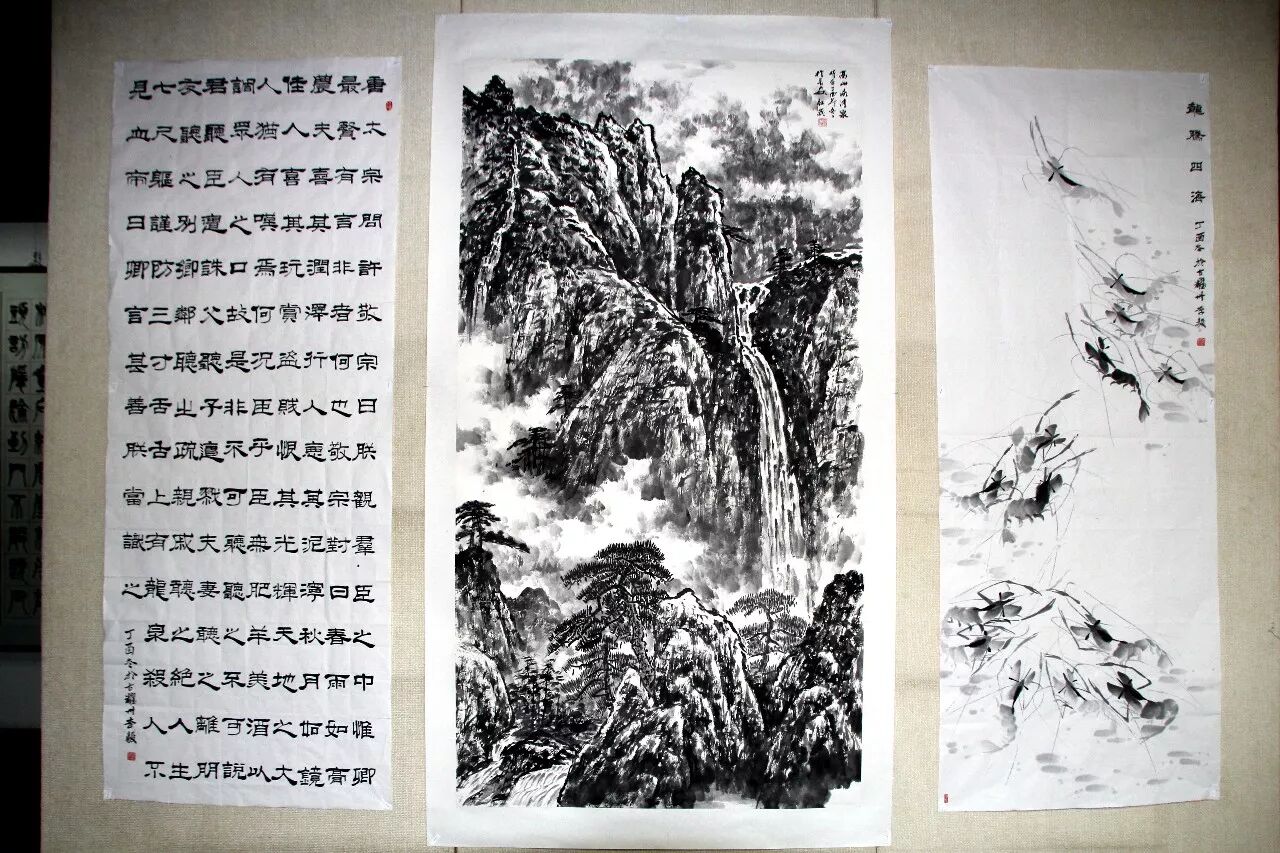 唐太宗問許敬宗曰朕觀羣臣之中惟卿
最賢有言非者何也敬宗對曰春雨如膏
農夫喜其潤澤行人惡其泥濘秋月如鏡
佳人喜其玩賞盜賊恨其光輝天地之大
人猶有嘆焉何况臣乎臣無肥羊美酒以
調眾人之口故是非不可聽聽之不可說
君聽臣遭誅父聽子遭戮夫妻聽之離朋
友聽之別鄉鄰聽之疏親戚聽之絕人生
七尺軀謹防三寸舌舌上有龍泉殺人不
見血帝曰卿言甚善朕當識之
丁酉冬於古耀州李毅
龍騰四海
丁酉冬於古耀州李毅